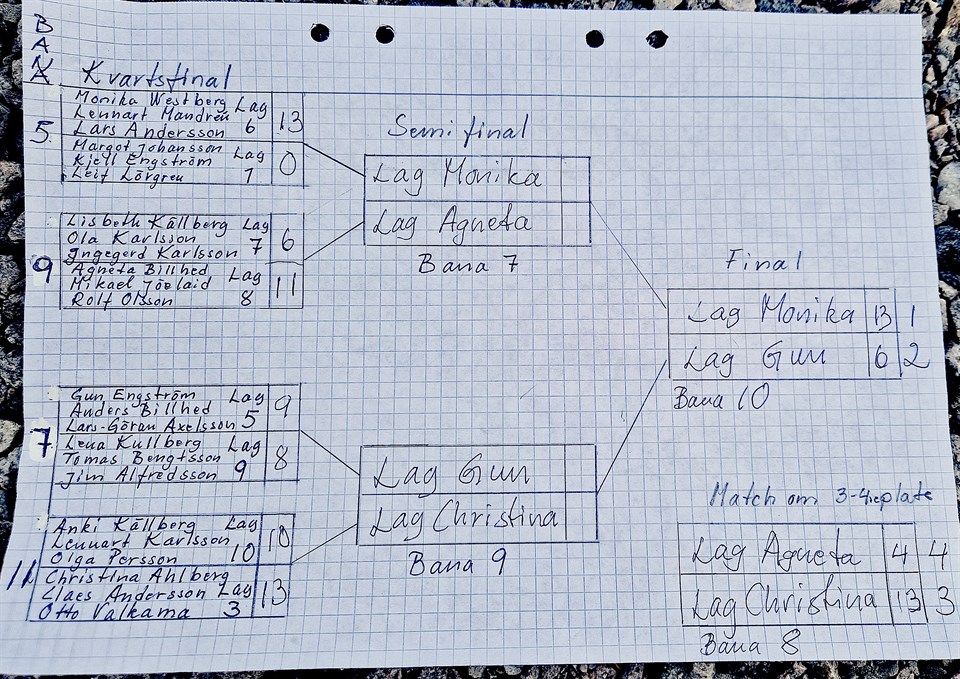 BANA
Kvartsfinal
Monika Westberg Lag
Lennart Mandréu
Lars Andersson 6 13
5
Margot Johansson Lag
Kjell Engström 0
Leif Lörgren 1
Lisbeth Källberg Lag
Ola Karlsson 7 6
Ingegerd Karlsson
9
Agneta Billhed Lag
Mikael Jöelaid 11
Rolf Olsson 8
Gun Engström Lag
Anders Billhed 9
Lars-Göran Axelsson 5
7
Lena Kullberg Lag
Tomas Bengtsson 8
Jim Alfredsson 9
Anki Källberg Lag
Lennart Karlsson 10
Olga Persson 10
11
Christina Ahlberg
Claes Andersson Lag 13
Otto Valkama 3
Semifinal
Lag Monika
Lag Agneta
Bana 7
Lag Gun
Lag Christina
Bana 9
Final
Lag Monika 13 1
Lag Gun 6 2
Bana 10
Match om 3-4:e plats
Lag Agneta 4 4
Lag Christina 13 3
Bana 8